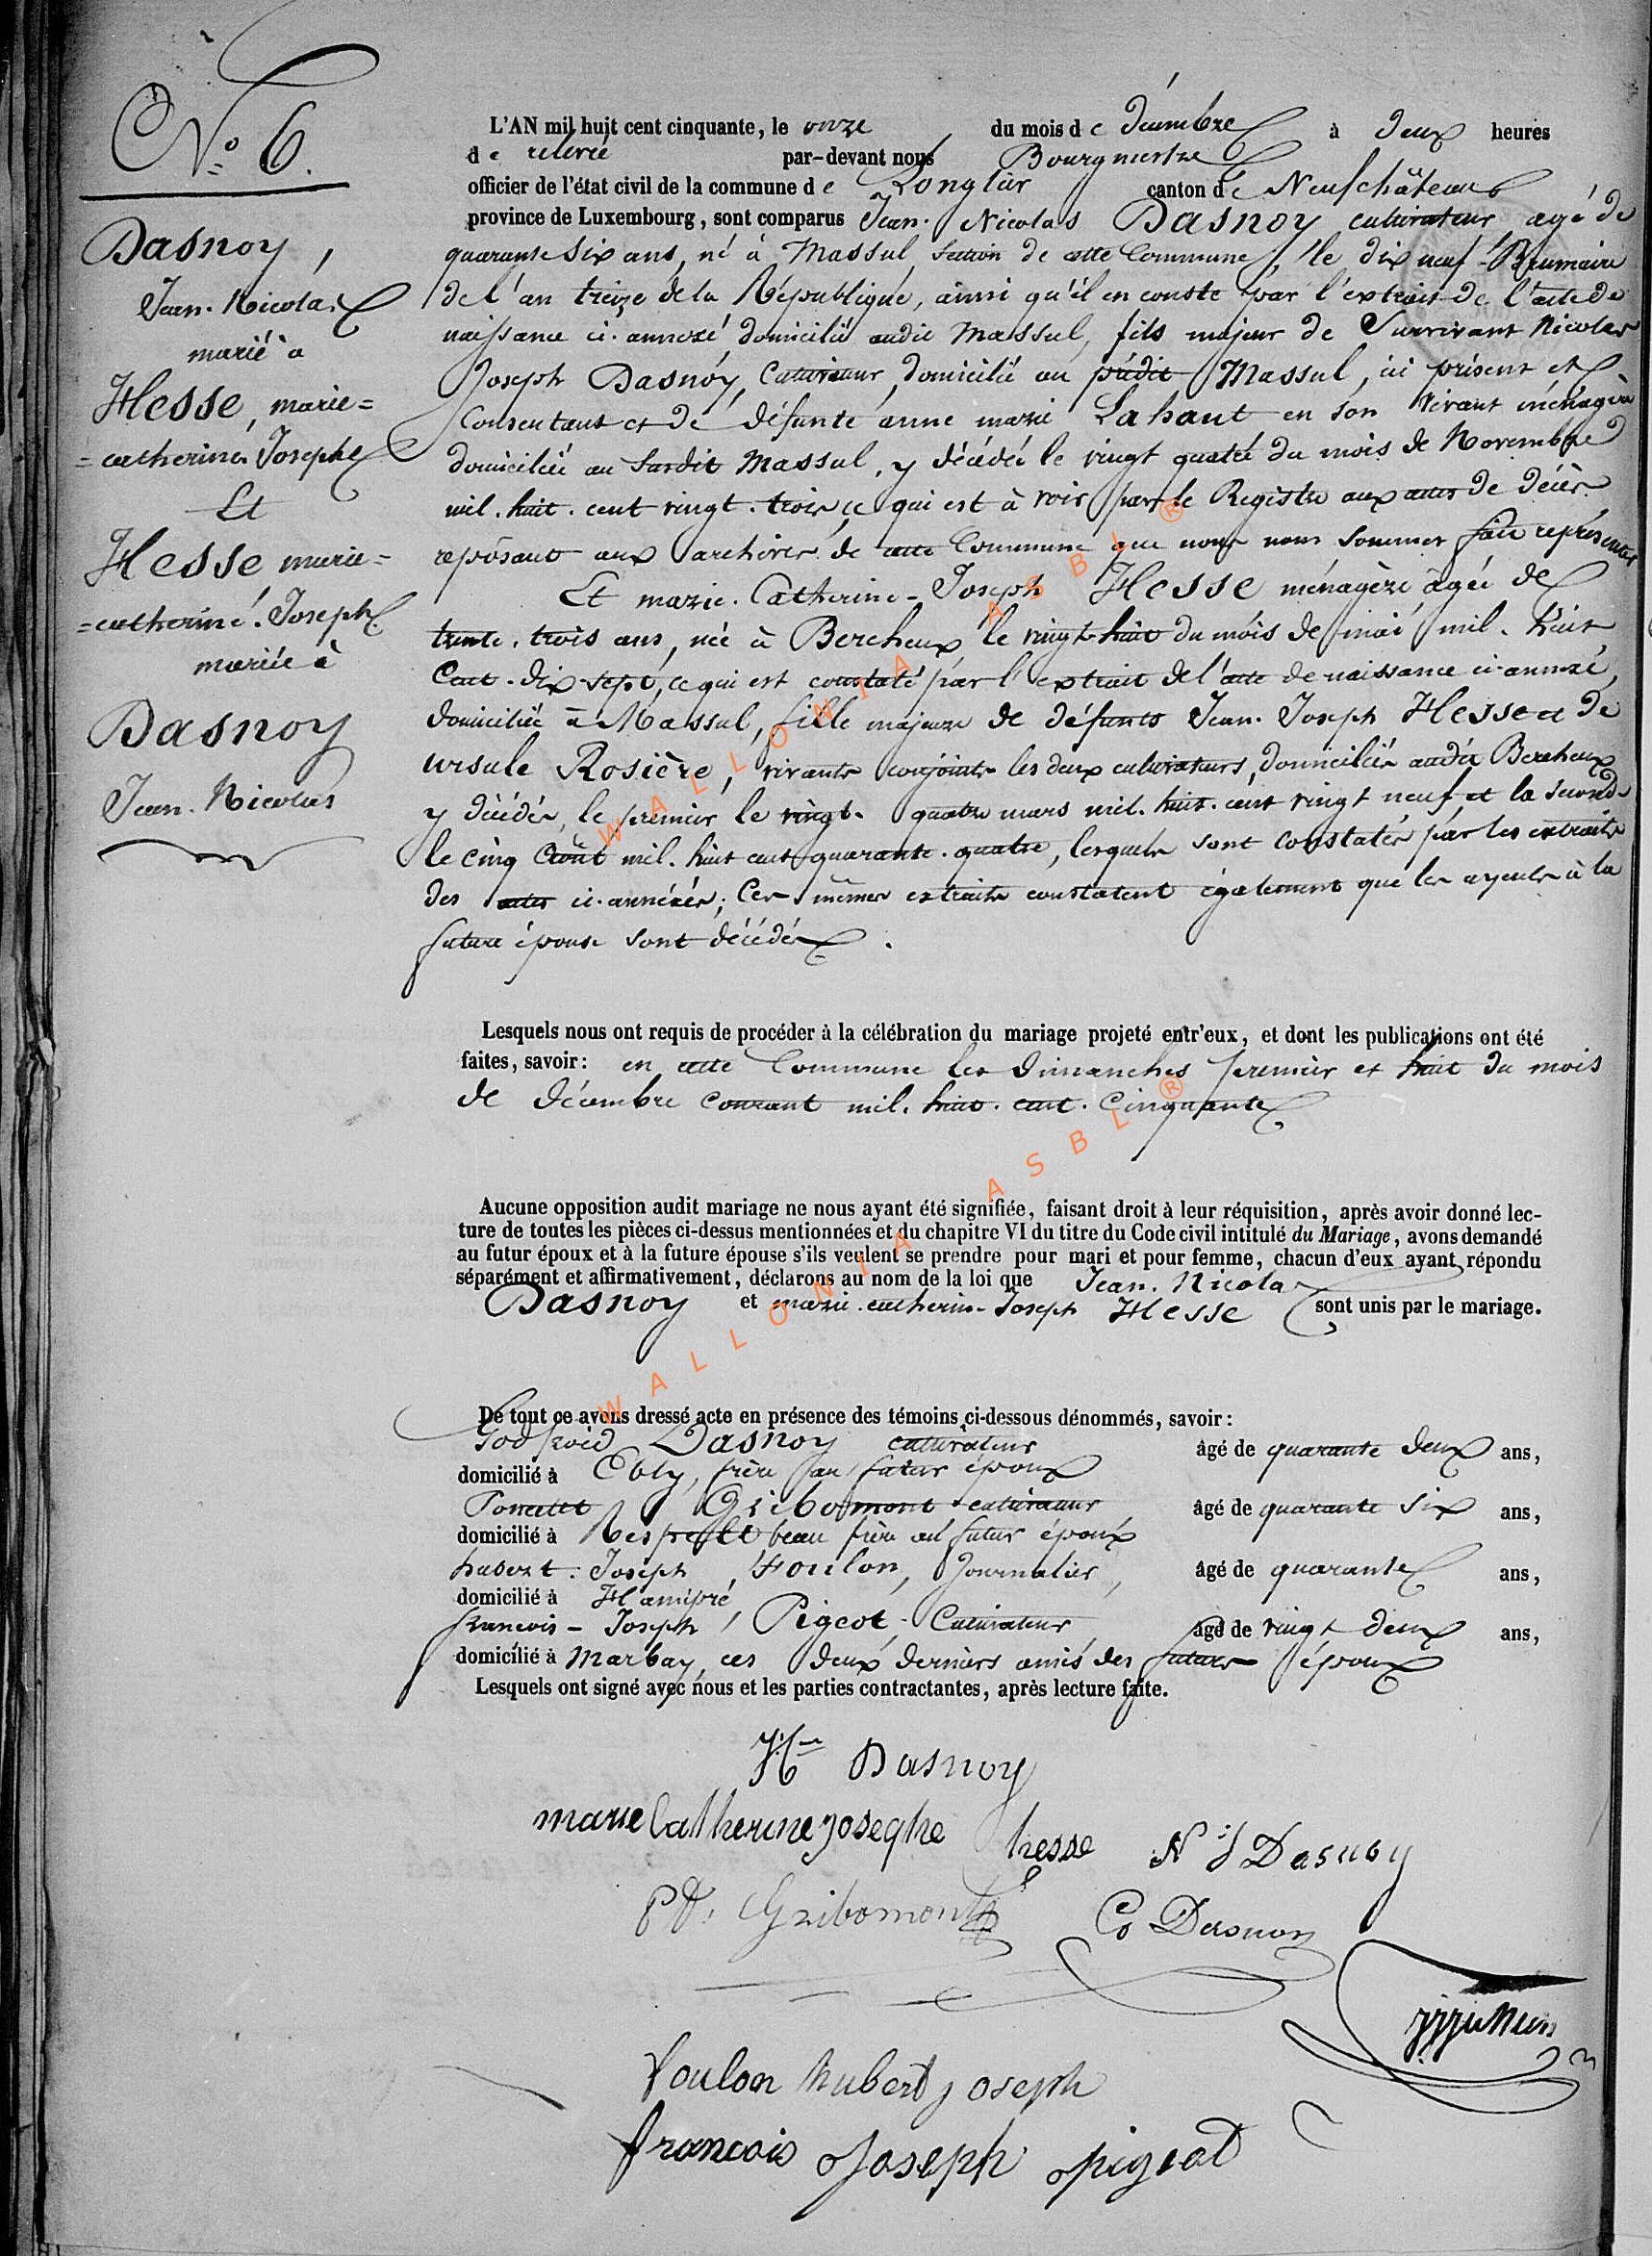 N° 6.
Dasnoy,
Jean. Nicolas
marié à
Hesse, marie=
=catherine Josephe
Et
Hesse marie=
=catherine. Joseph
mariée à
Dasnoy
Jean. Nicolas
L'AN mil huit cent cinquante, le onze du mois de décembre à deux heures
de relevée par-devant nous Bourgmestre
officier de l'état civil de la commune de Longlier canton de Neufchâteau
province de Luxembourg, sont comparus Jean. Nicolas Dasnoy cultivateur agé de
quarante six ans, né à Massul, section de cette Commune, le dix neuf Brumaire
de l'an treize de la République, ainsi qu'il en conste par l'extrait de l'acte de
naissance ci-annexé, domicilié audit Massul, fils majeur de Survivant Nicolas
Joseph Dasnoy, Cultivateur, domicilié au prédit Massul, ici présent et
Consentant et de défunte anne marie Lahaut en son vivant ménagère
domiciliée au susdit Massul, y décédée le vingt quatre du mois de Novembre
mil. huit. cent vingt. trois, ce qui est à voir par le Registre aux actes de décès
reposant aux archives de cette Commune que nous nous sommes fait représenter
Et marie. Catherine- Joseph Hesse ménagère, âgée de
trente. trois ans, née à Bercheux le vingt-huit du mois de mai mil. huit
Cent. dix-sept, ce qui est constaté par l'extrait de l'acte de naissance ci-annexé,
domiciliée à Massul, fille majeure de défunts Jean. Joseph Hesse et de
ursule Rosière, vivants conjoints les deux cultivateurs, domiciliés audit Bercheux
y décédés, le premier le vingt. quatre mars mil. huit. cent vingt neuf, et la seconde
le cinq août mil. huit cent quarante. quatre, lesquels sont constatés par les extraits
des actes ci-annexés; Ces mêmes extraits constatent également que les ayeuls à la
future épouse sont décédés.
Lesquels nous ont requis de procéder à la célébration du mariage projeté entr'eux, et dont les publications ont été
faites, savoir: en cette Commune les dimanches premier et huit du mois
de décembre courant mil. huit. cent. Cinquante
Aucune opposition audit mariage ne nous ayant été signifiée, faisant droit à leur réquisition, après avoir donné lec-
ture de toutes les pièces ci-dessus mentionnées et du chapitre VI du titre du Code civil intitulé du Mariage, avons demandé
au futur époux et à la future épouse s'ils veulent se prendre pour mari et pour femme, chacun d'eux ayant répondu
séparément et affirmativement, déclarons au nom de la loi que Jean. Nicolas
Dasnoy et marie-catherine-Joseph Hesse sont unis par le mariage.
De tout ce avons dressé acte en présence des témoins ci-dessous dénommés, savoir:
Godfroid Dasnoy cultivateur âgé de quarante deux ans,
domicilié à Ebly, frère au futur époux
Poncelet Gribomont cultivateur âgé de quarante six ans,
domicilié à Respelt beau frère au futur époux
hubert. Joseph Foulon, Journalier, âgé de quarante ans,
domicilié à Hamipré,
francois- Joseph Pigeot. Cultivateur âgé de vingt deux ans,
domicilié à Marbay, ces deux derniers amis des futurs époux
Lesquels ont signé avec nous et les parties contractantes, après lecture faite.
Dasnoy
marie Catherine josephe hesse
N J Dasnoy
Gribomont
G Dasnoy
foulon hubert joseph
francois joseph pigeot
WALLONIA ASBL ®
WALLONIA ASBL ®